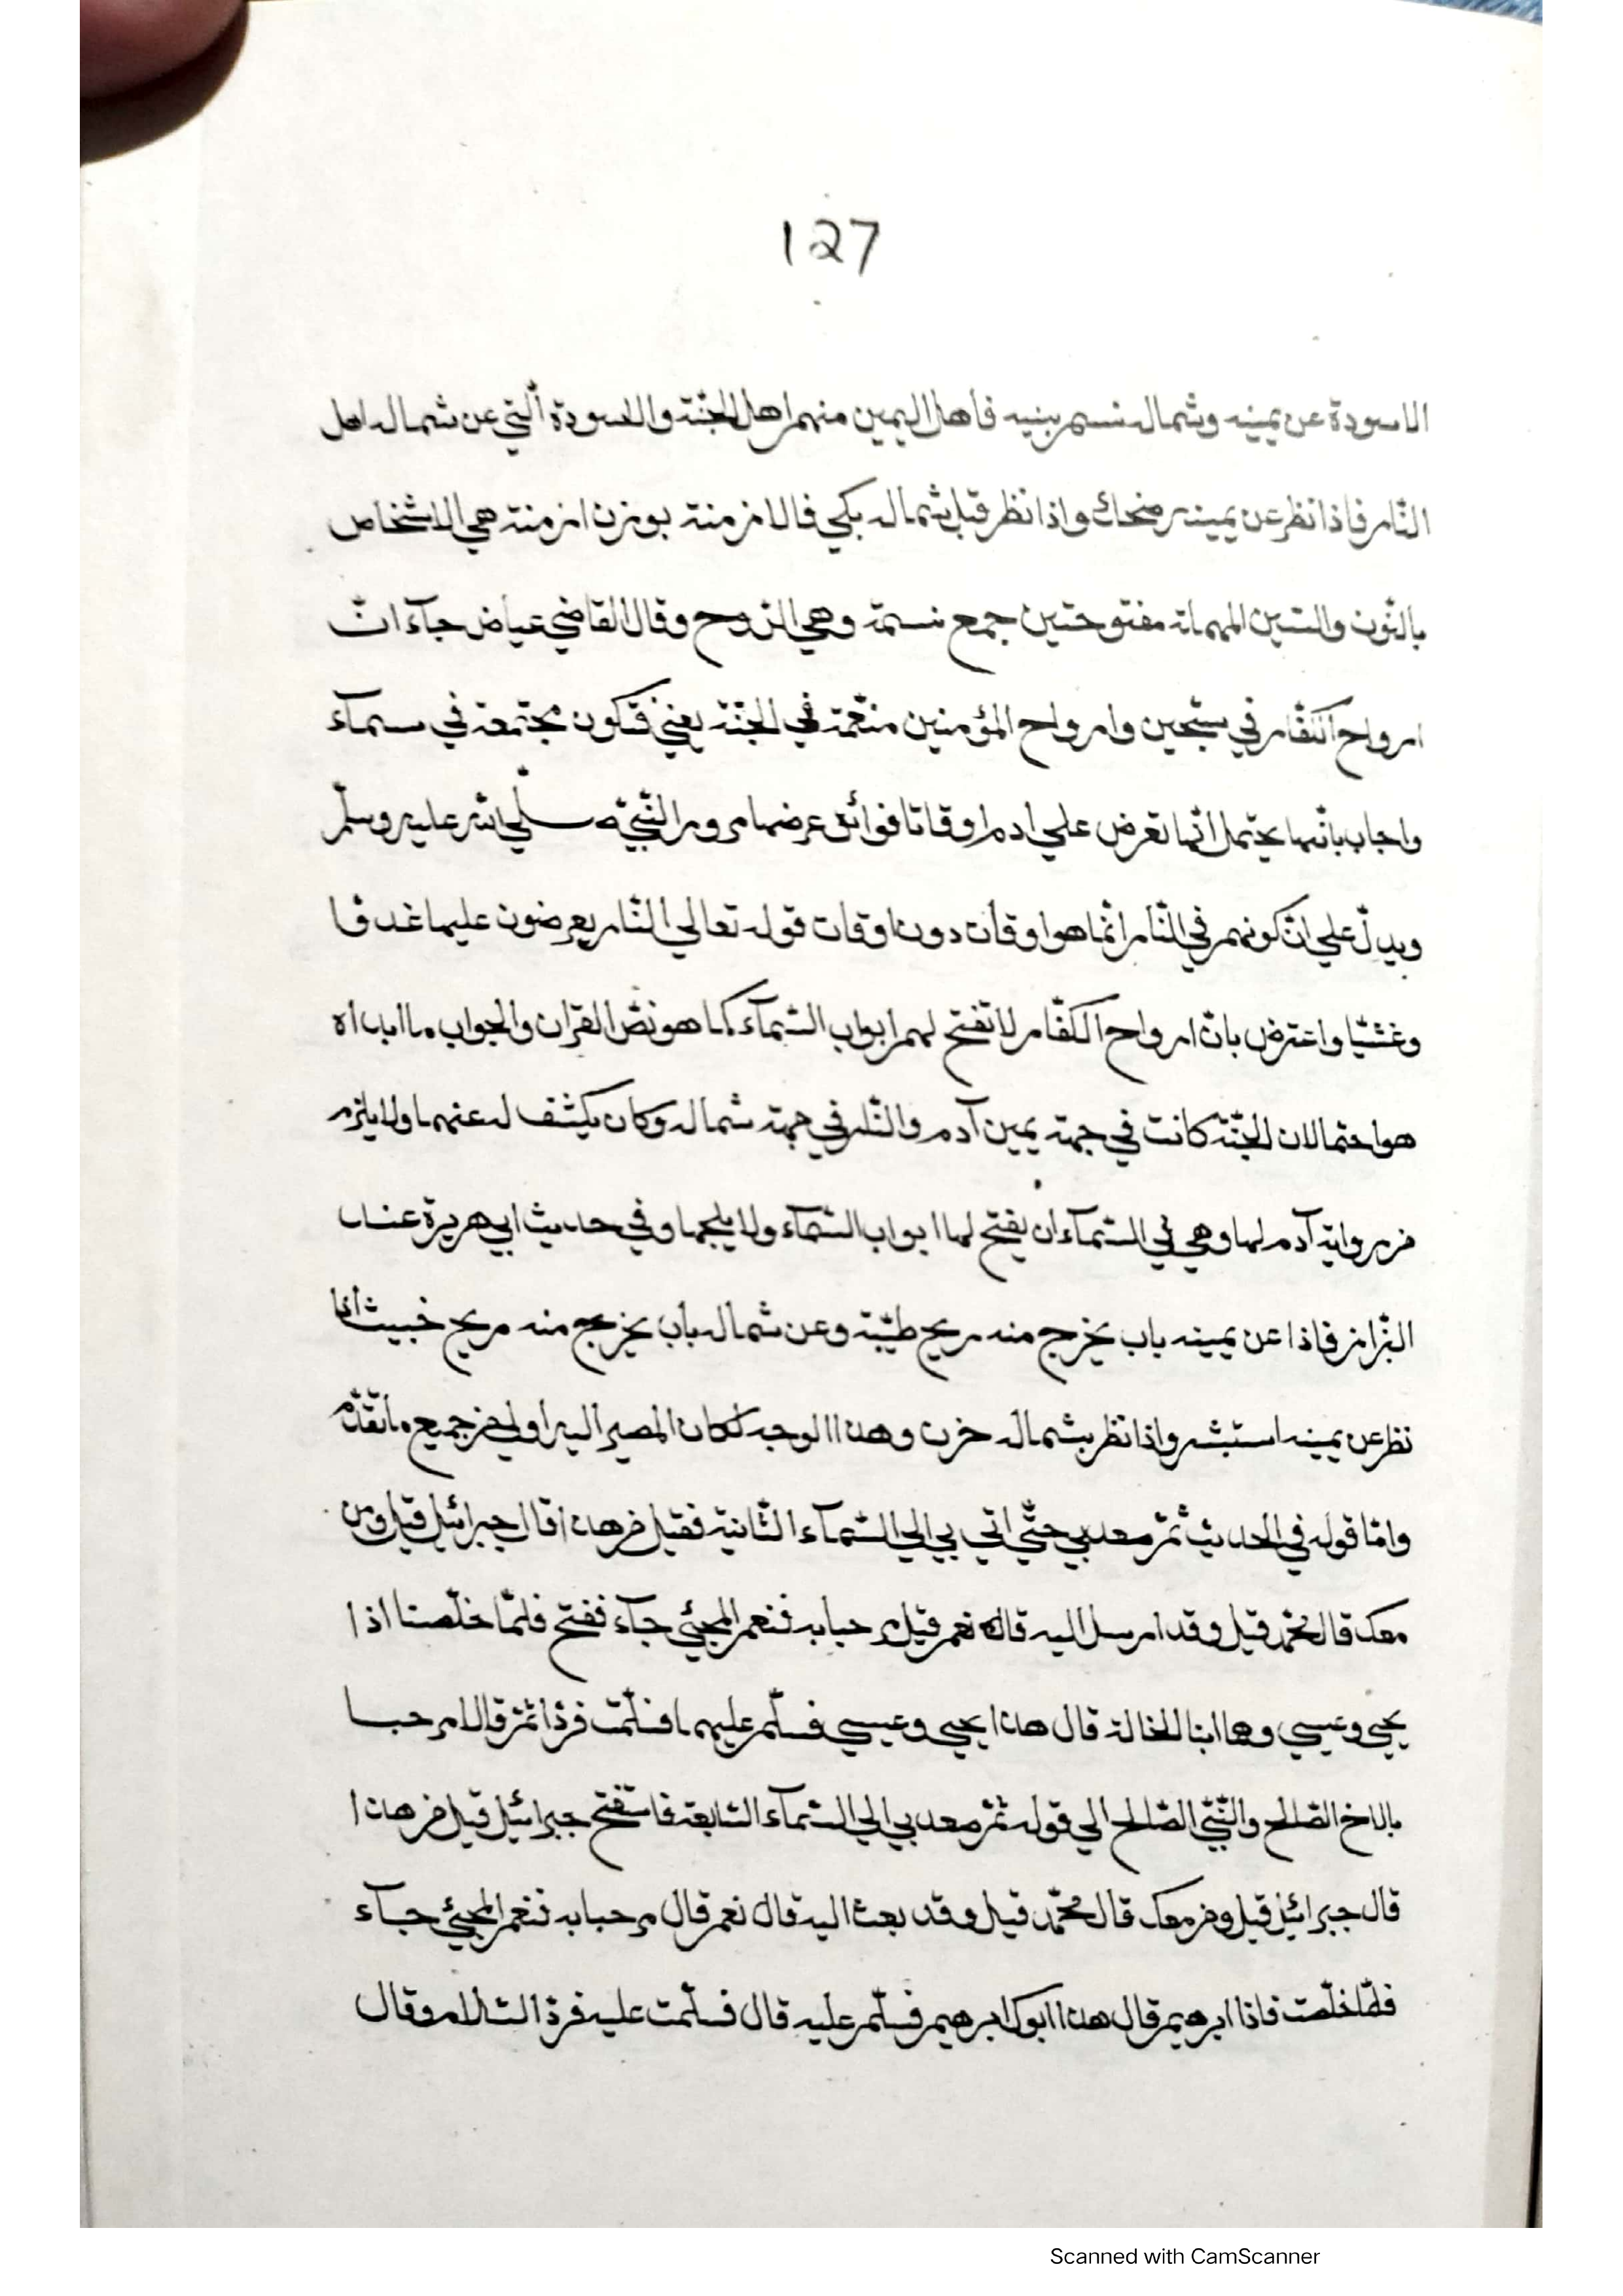 127
الاسودة عن يمينه وشماله نسم بنيه فاهل اليمين منهم اهل الجنّة والاسودة الّتي عن شماله اهل
النّار فاذا نظر عن يمينه ضحك واذا نظر قبل شماله بكي فالازمنة بوزن ازمنة هي الاشخاص
بالنّون والسّين المهملة مفتوحتين جمع نسمة وهي الرّوح وقال القاضي عياض جآء انّ
ارواح الكفّار في سجّين وارواح المؤمنين منعّمة في الجنّة يعني فتكون مجتمعة في سمآء
واجاب بانّها يحتمل انّها تعرض علي ادم اوقاتا فوافق عرضها مرور النّبيّ صلّي الله عليه وسلّم
ويدلّ علي انّ كونهم في النّار انّما هو اوقات دون اوقات قوله تعالي النّار يعرضون عليها غدوّا
وعشيّا واعترض بانّ ارواح الكفّار لا تفتح لهم ابواب السّمآء كما هو نصّ القران والجواب ما ابداه
هو احتمالا ان الجنّة كانت في جهة يمين آدم والنّار في جهة شماله وكان يكشف له عنهما ولا يلزم
من رواية آدم لها وهي في السّمآء ان يفتح لها ابواب السّمآء ولا يلجها وفي حديث ابي هريرة عند
البّزاز فاذا عن يمينه باب يخرج منه ريح طيّبة وعن شماله باب يخرج منه ريح خبيث اذا
نظر عن يمينه استبشر واذا نظر بشماله حزن وهذا الوجه لكان المصير اليه اولي من جميع ما تقدّم
وامّا قوله في الحديث ثمّ صعد بي حتّي اتي بي الي السّمآء الثّانية فقيل من هذا قال جبرائيل قيل ومن
معك قال محمّد قيل وقد ارسل اليه قال نعم قيل مرحبا به فنعم المجيئ جآء ففتح فلمّا خلّصنا اذا
يحيي وعيسي وهما ابنا الخالة قال هذا يحيي وعيسي فسلّم عليهما فسلّمت فردّا ثمّ قالا مرحبا
بالاخ الصّالح والنّبيّ الصّالح الي قوله ثمّ صعد بي الي السّمآء السّابعة فاستفتح جبرائيل قيل من هذا
قال جبرائيل قيل ومن معك قال محمّد قيل وقد بعث اليه قال نعم قال مرحبا به فنعم المجيئ جآء
فلمّا خلّصت فاذا ابرهيم قال هذا ابوك ابرهيم فسلّم عليه قال فسلّمت عليه فردّ السّلام وقال
Scanned with CamScanner